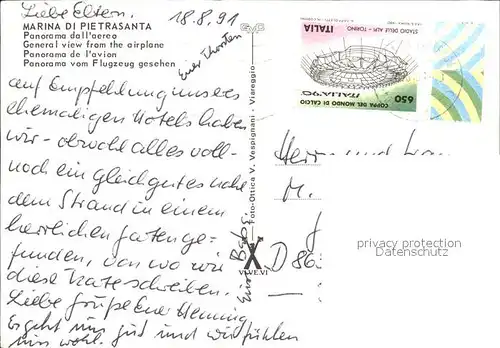 Liebe Eltern,
18.8.91
MARINA DI PIETRASANTA
Panorama dall'aereo
General view from the airplane
Panorama de l'avion
Panorama vom Flugzeug gesehen
Euer Thorsten
auf Empfehlung unseres
ehemaligen Hotels haben
wir - obwohl alles voll -
noch ein gleich gutes nahe
dem Strand in einem
herrlichen Garten ge-
funden, von wo wir
diese Karte schreiben.
Liebe Grüße Euer Henning
Es geht uns gut und wir fühlen
uns wohl.
Foto-Ottica V. Vespignani - Viareggio
VI.VE.VI
ITALIA
STADIO DELLE ALPI - TORINO
COPPA DEL MONDO DI CALCIO
ITALIA '90
650
Herrn und Frau
M.
D 86
privacy protection
Datenschutz